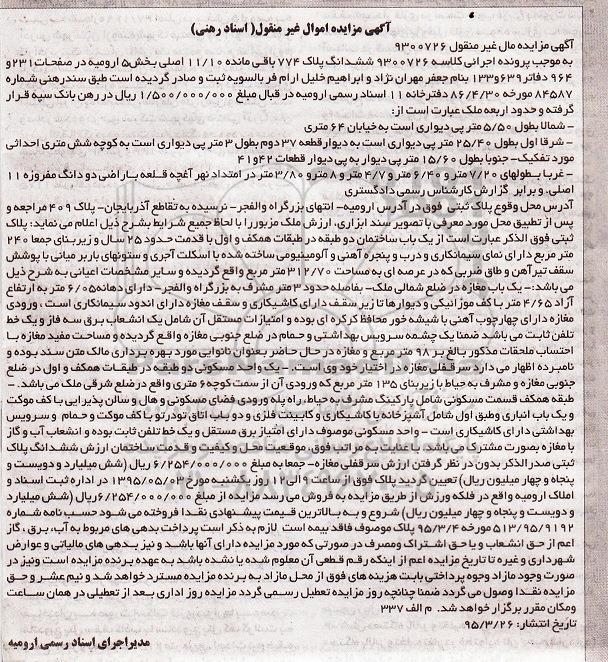 آگهی مزایده اموال غیر منقول( اسناد رهنی)
آگهی مزایده مال غیر منقول ۹۳۰۰۷۲۶
به موجب پرونده اجرائی کلاسه ۹۳۰۰۷۲۶ ششدانگ پلاک ۷۷۴ باقی مانده ۱۱/۱۰ اصلی بخش۵ ارومیه در صفحات۲۳۱و
۹۶۴ دفاتر۶۳۹و۱۳۳ بنام جعفر مهران نژاد و ابراهیم خلیل ارام فر بالسویه ثبت و صادر گردیده است طبق سندرهنی شماره
۸۴۵۸۷ مورخه ۸۶/۴/۳۰ دفترخانه ۱۱ اسناد رسمی ارومیه در قبال مبلغ ۱/۵۰۰/۰۰۰/۰۰۰ ریال در رهن بانک سپه قرار
گرفته و حدود اربعه ملک عبارت است از:
- شمالا بطول ۵/۵۰ متر پی دیواری است به خیابان ۶۴ متری
- شرقا اول بطول ۲۵/۴۰ متر پی دیواری است به دیوارقطعه ۳۷ دوم بطول ۳ متر پی دیواری است به کوچه شش متری احداثی
مورد تفکیک- جنوبا بطول ۱۵/۶۰ متر پی دیوار به پی دیوار قطعات ۴۲و۴۱
- غربا بطولهای ۷/۲۰ متر و ۶/۴۰ متر و ۴/۷ متر و ۸ مترو ۳/۸۰ متر در امتداد نهر آغچه قلعه باراضی دو دانگ مفروزه ۱۱
اصلی. و برابر گزارش کارشناس رسمی دادگستری
آدرس محل وقوع پلاک ثبتی فوق در آدرس ارومیه- انتهای بزرگراه والفجر- نرسیده به تقاطع آذربایجان- پلاک ۴۰۹ مراجعه و
پس از تطبیق محل مورد معرفی با تصویر سند ابرازی، ارزش ملک مزبوررا با لحاظ جمیع شرایط بشرح ذیل اعلام می نماید: پلاک
ثبتی فوق الذکر عبارت است از یک باب ساختمان دو طبقه در طبقات همکف و اول با قدمت حدود ۲۵ سال و زیربنای جمعا ۲۴۰
متر مربع دارای نمای سیمانکاری و درب و پنجره آهنی و آلومینیومی ساخته شده با اسکلت آجری و ستونهای باربر میانی با پوشش
سقف تیرآهن و طاق ضربی که در عرصه ای به مساحت ۳۱۲/۷۰ متر مربع واقع گردیده و سایر مشخصات اعیانی به شرح ذیل
می باشد:- یک باب مغازه در ضلع شمالی ملک- بفاصله حدود ۳ متر مشرف به بزرگراه والفجر- دارای دهانه۶/۰۵ متر به ارتفاع
آزاد ۴/۶۵ متر با کف موزائیکی و دیوارها تا زیر سقف دارای کاشیکاری و سقف مغازه دارای اندود سیمانکاری است ، ورودی
مغازه دارای چهارچوب آهنی با شیشه خور محافظ کرکره ای بوده و امتیازات مستقل آن شامل یک انشعاب برق سه فاز و یک خط
تلفن ثابت می باشد ضمنا یک چشمه سرویس بهداشتی و حمام در ضلع جنوبی مغازه واقع گردیده و مساحت مفید مغازه با
احتساب ملحقات مذکور بالغ بر ۹۸ متر مربع و مغازه در حال حاضر بعنوان نانوایی مورد بهره برداری مالک متن سند بوده و
نامبرده اظهار می دارد سرقفلی مغازه در اختیار خود وی است. - یک واحد مسکونی دو طبقه در طبقات همکف و اول در ضلع
جنوبی مغازه و مشرف به حیاط با زیربنای ۱۳۵ متر مربع که ورودی آن از سمت کوچه ۶ متری واقع در ضلع شرقی ملک می باشد. -
طبقه همکف قسمت مسکونی شامل پارکینگ مشرف به حیاط، راه پله ورودی فضای مسکونی و هال و سالن پذیرایی با کف موکت
و یک باب انباری وطبق اول شامل آشپزخانه با کاشیکاری و کابینت فلزی و دو باب اتاق تودرتو با کف موکت و حمام و سرویس
بهداشتی دارای کاشیکاری است - واحد مسکونی موصوف دارای امتیاز برق مستقل و یک خط تلفن ثابت بوده و انشعاب آب و گاز
با مغازه بصورت مشترک می باشد. با عنایت به مراتب فوق و موقعیت محل و کیفیت و قدمت ساختمان ارزش ششدانگ پلاک
ثبتی صدر الذکر بدون در نظر گرفتن ارزش سرقفلی مغازه- جمعا به مبلغ ۶/۲۵۴/۰۰۰/۰۰۰ ریال (شش میلیارد و دویست و
پنجاه و چهار میلیون ریال) تعیین گردید پلاک فوق از ساعت ۹ الی ۱۲ روز یکشنب مورخ ۱۳۹۵/۰۵/۰۳ در اداره ثبت اسناد و
املاک ارومیه واقع در فلکه ورزش از طریق مزایده به فروش می رسد مزایده از مبلغ ۶/۲۵۴/۰۰۰/۰۰۰ریال (شش میلیارد
و دویست و پنجاه و چهار میلیون ریال) شروع و به بالاترین قیمت پیشنهادی نقدا فروخته می شود حسب نامه شماره
۵۱۳/۹۵/۹۱۹۲ مورخه ۹۵/۳/۴ پلاک موصوف فاقد بیمه است لازم به ذکر است پرداخت بدهی های مربوط به آب ، برق، گاز
اعم از حق انشعاب و یا حق اشتراک ومصرف در صورتی که مورد مزایده دارای آنها باشد و نیز بدهی های مالیاتی و عوارض
شهرداری و غیره تا تاریخ مزایده اعم از اینکه رقم قطعی آن معلوم شده یا نشده باشد به عهده برنده مزایده است ونیز در
صورت وجود مازاد وجوه پرداختی بابت هزینه های فوق از محل مازاد به برنده مزایده مسترد خواهد شد و نیم عشر و حق
مزایده نقدا وصول می گردد ضمنا چنانچه روز مزایده تعطیل رسمی گردد مزایده روز اداری بعد از تعطیلی در همان ساعت
ومکان مقرر برگزار خواهد شد. م الف ۳۳۷
تاریخ انتشار: ۹۵/۳/۲۶
مدیراجرای اسناد رسمی ارومیه